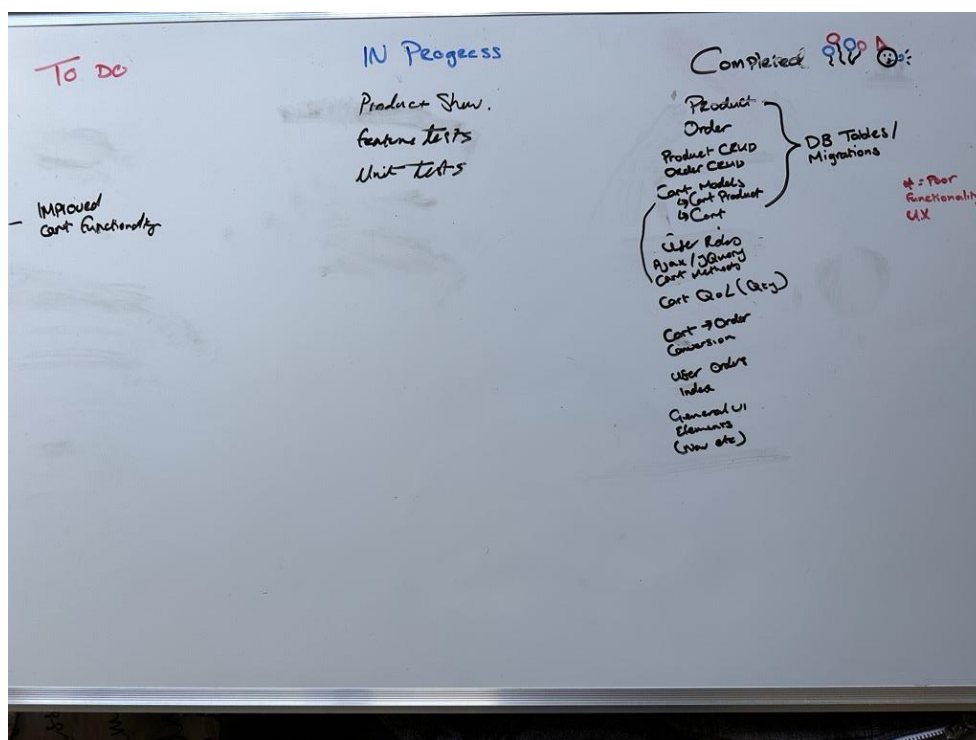 To Do
- Improved
Cart Functionality
IN Progress
Product Show.
Feature tests
Unit tests
Completed
Product
Order
Product CRUD
Order CRUD
Cart Models
↳ Cart Product
↳ Cart
User Roles
Ajax / JQuery
Cart Methods
Cart QoL (Qty)
Cart → Order
Conversion
User Orders
Index
General UI
Elements
(Nav etc)
DB Tables /
Migrations
* = Poor
Functionality
UX